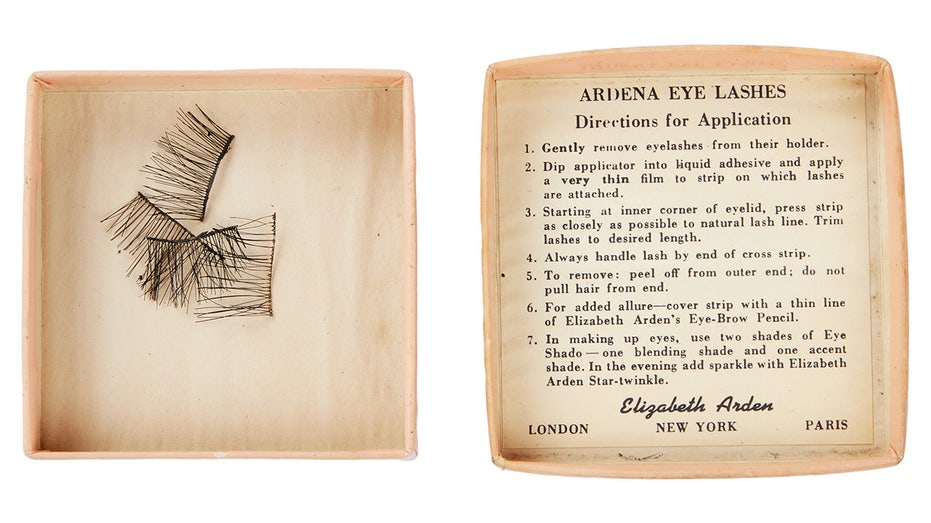 ARDENA EYE LASHES
Directions for Application
1. Gently remove eyelashes from their holder.
2. Dip applicator into liquid adhesive and apply
a very thin film to strip on which lashes
are attached.
3. Starting at inner corner of eyelid, press strip
as closely as possible to natural lash line. Trim
lashes to desired length.
4. Always handle lash by end of cross strip.
5. To remove: peel off from outer end; do not
pull hair from end.
6. For added allure—cover strip with a thin line
of Elizabeth Arden's Eye-Brow Pencil.
7. In making up eyes, use two shades of Eye
Shado—one blending shade and one accent
shade. In the evening add sparkle with Elizabeth
Arden Star-twinkle.
Elizabeth Arden
LONDON NEW YORK PARIS